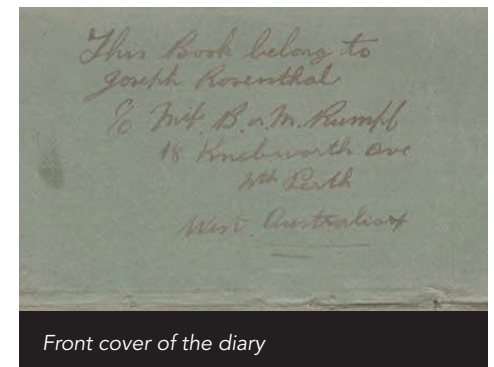 This Book belong to
Joseph Rosenthal
C/o B. or M. Rumpf
18 Knebworth Ave
Nth Perth
West. Australia
Front cover of the diary